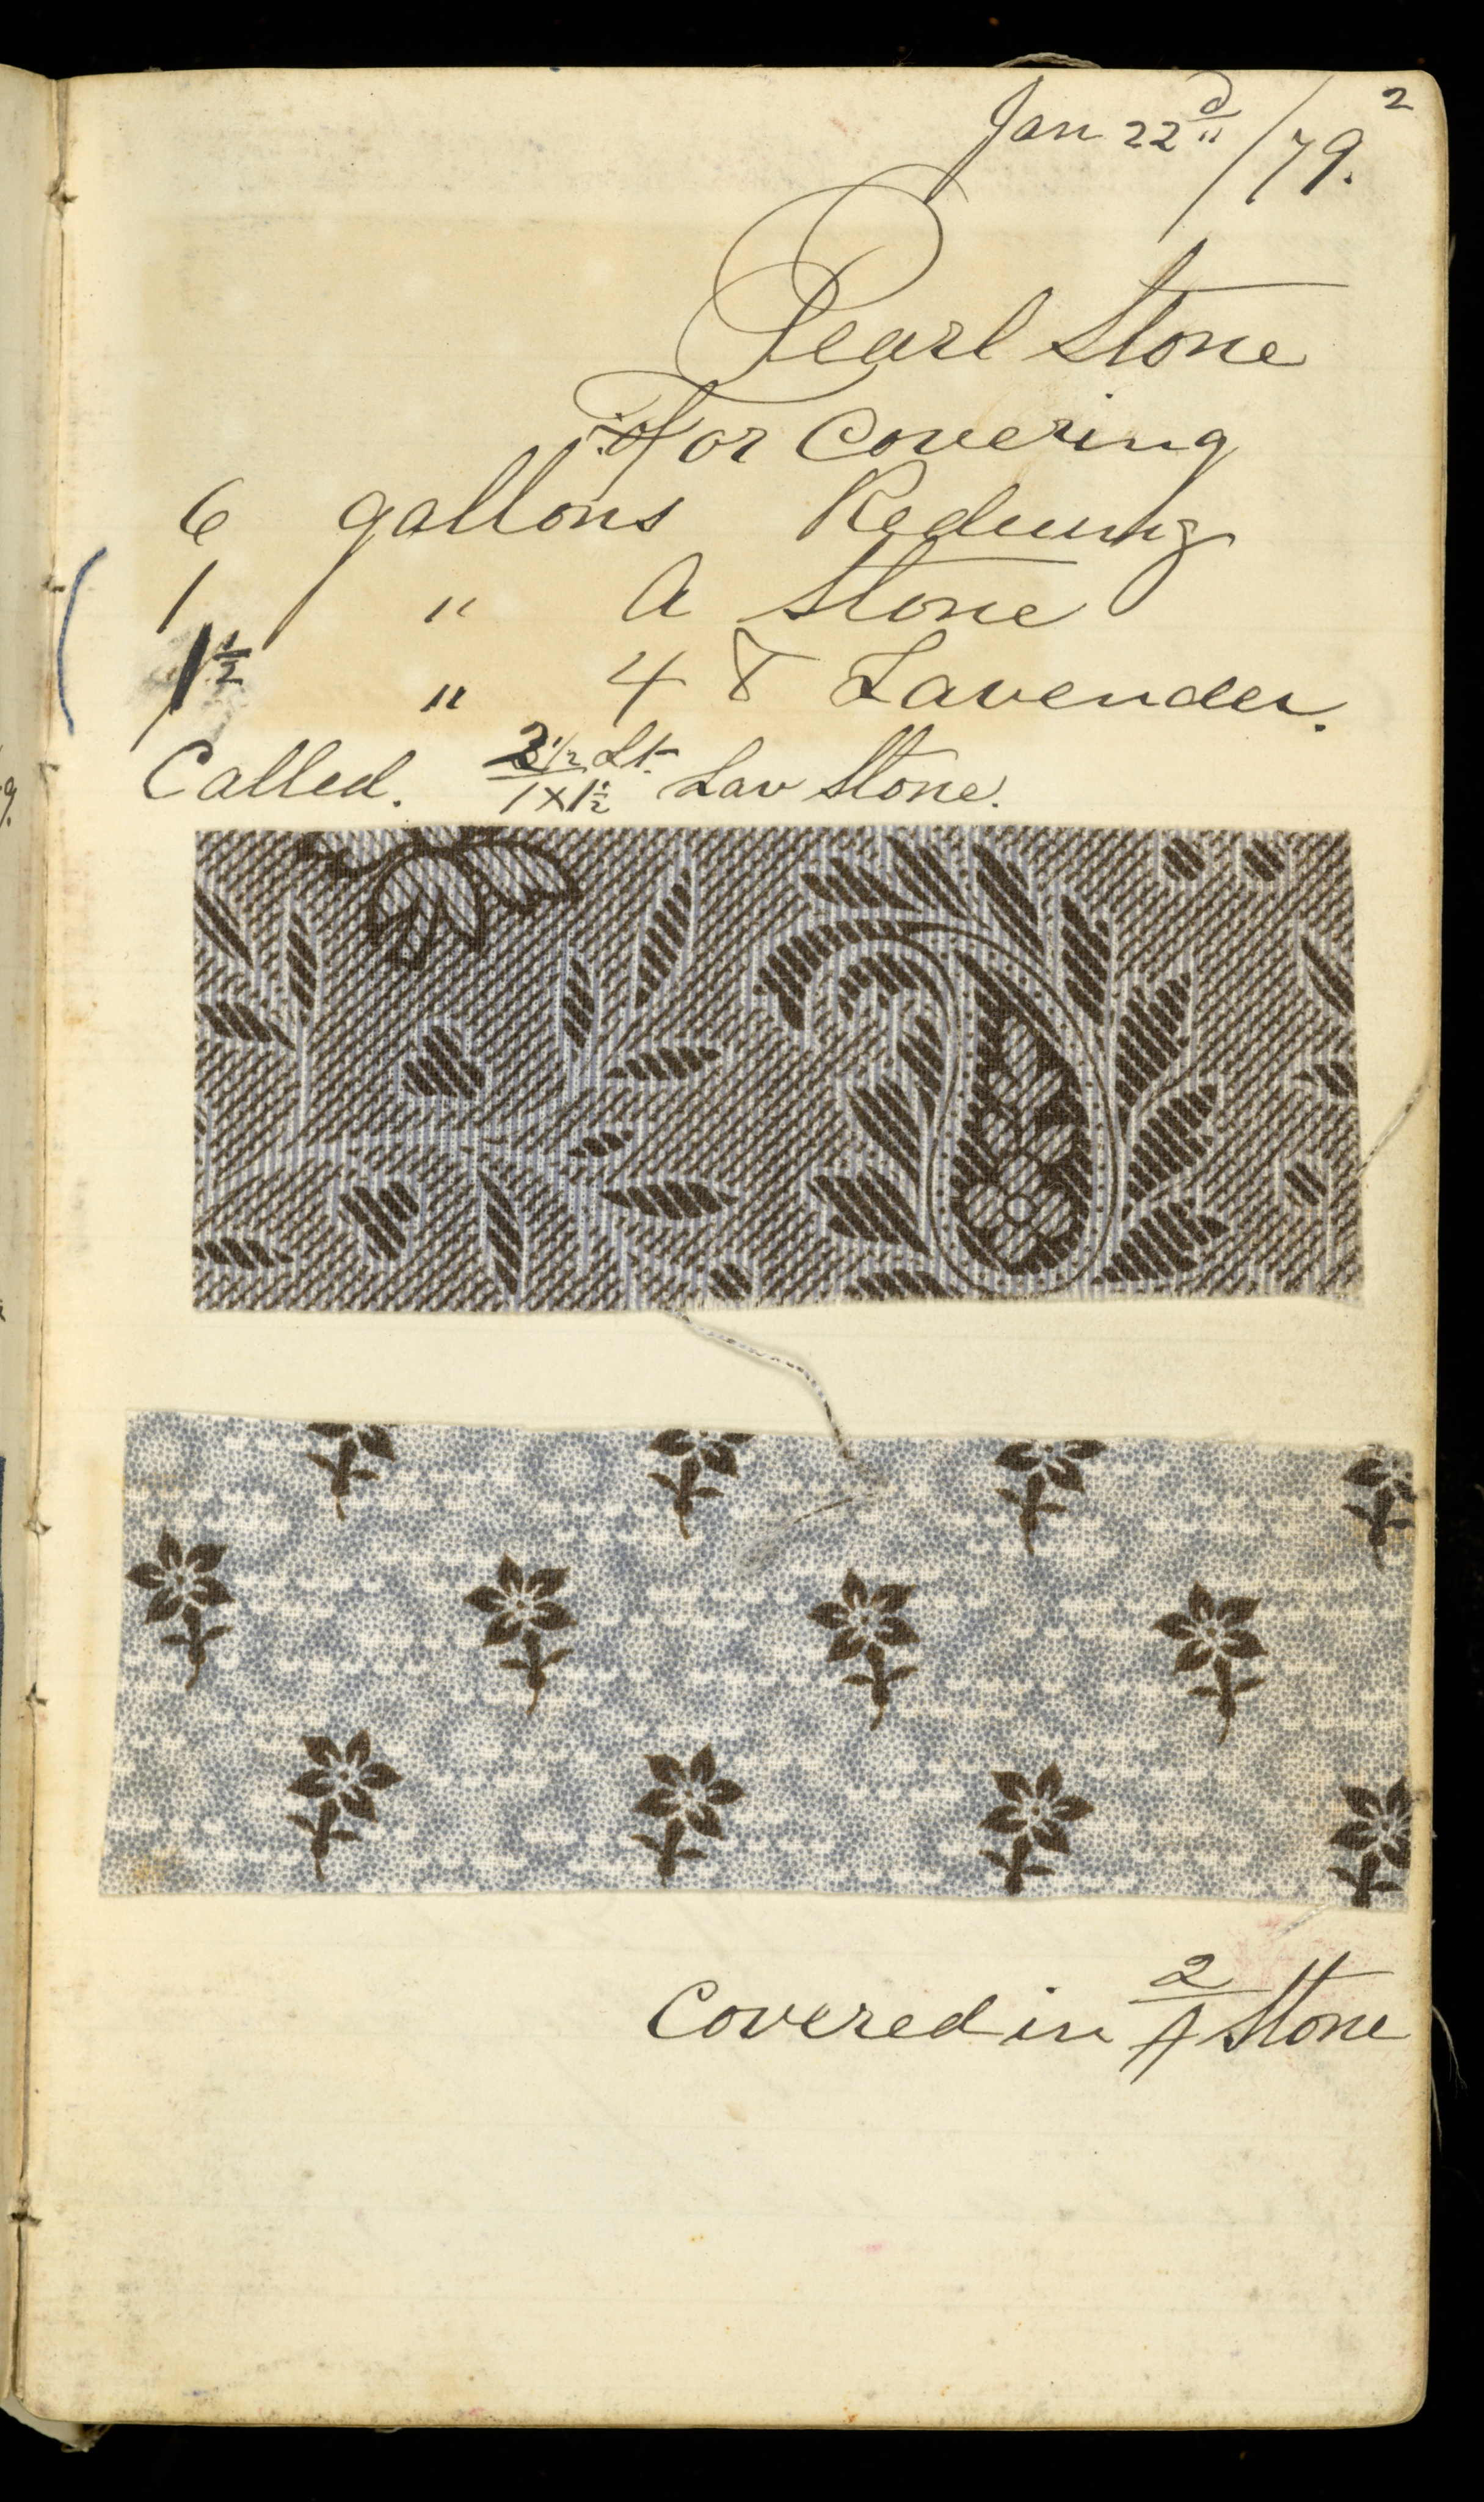 2
Jan 22d/79.
Pearl Stone
For Covering
6 gallons Reducing
1 " A Stone
1½ " 4 T Lavender.
Called. 2½/1x1½ Lt. Lav Stone.
Covered in 2/A Stone
9.